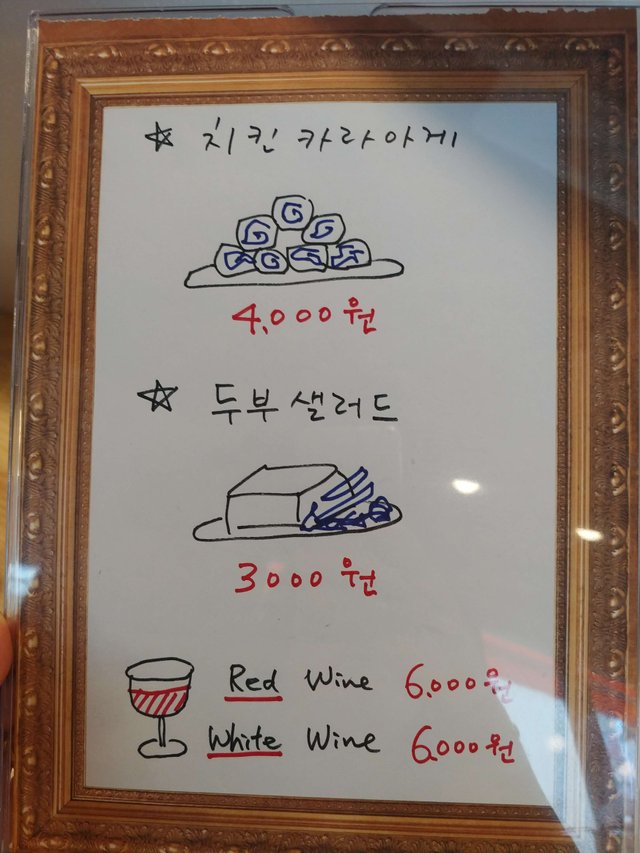 ☆ 치킨 카라아게
4,000원
☆ 두부 샐러드
3000원
Red Wine 6,000원
White Wine 6,000원